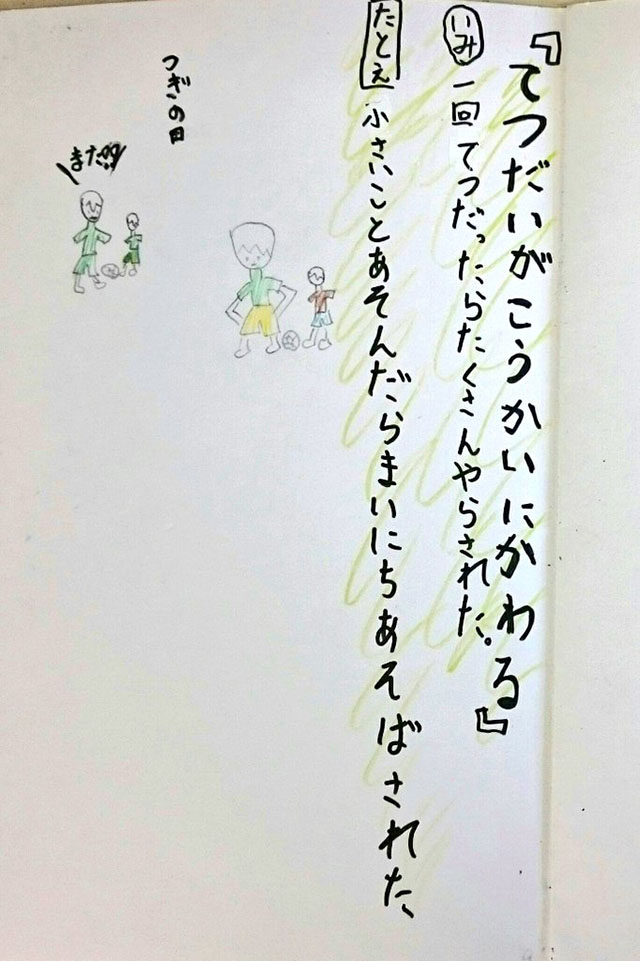 『てつだいがこうかいにかわる』
いみ 一回てつだったらたくさんやらされた。
たとえ 小さいことあそんだらまいにちあそばされた
つぎの日
また!?